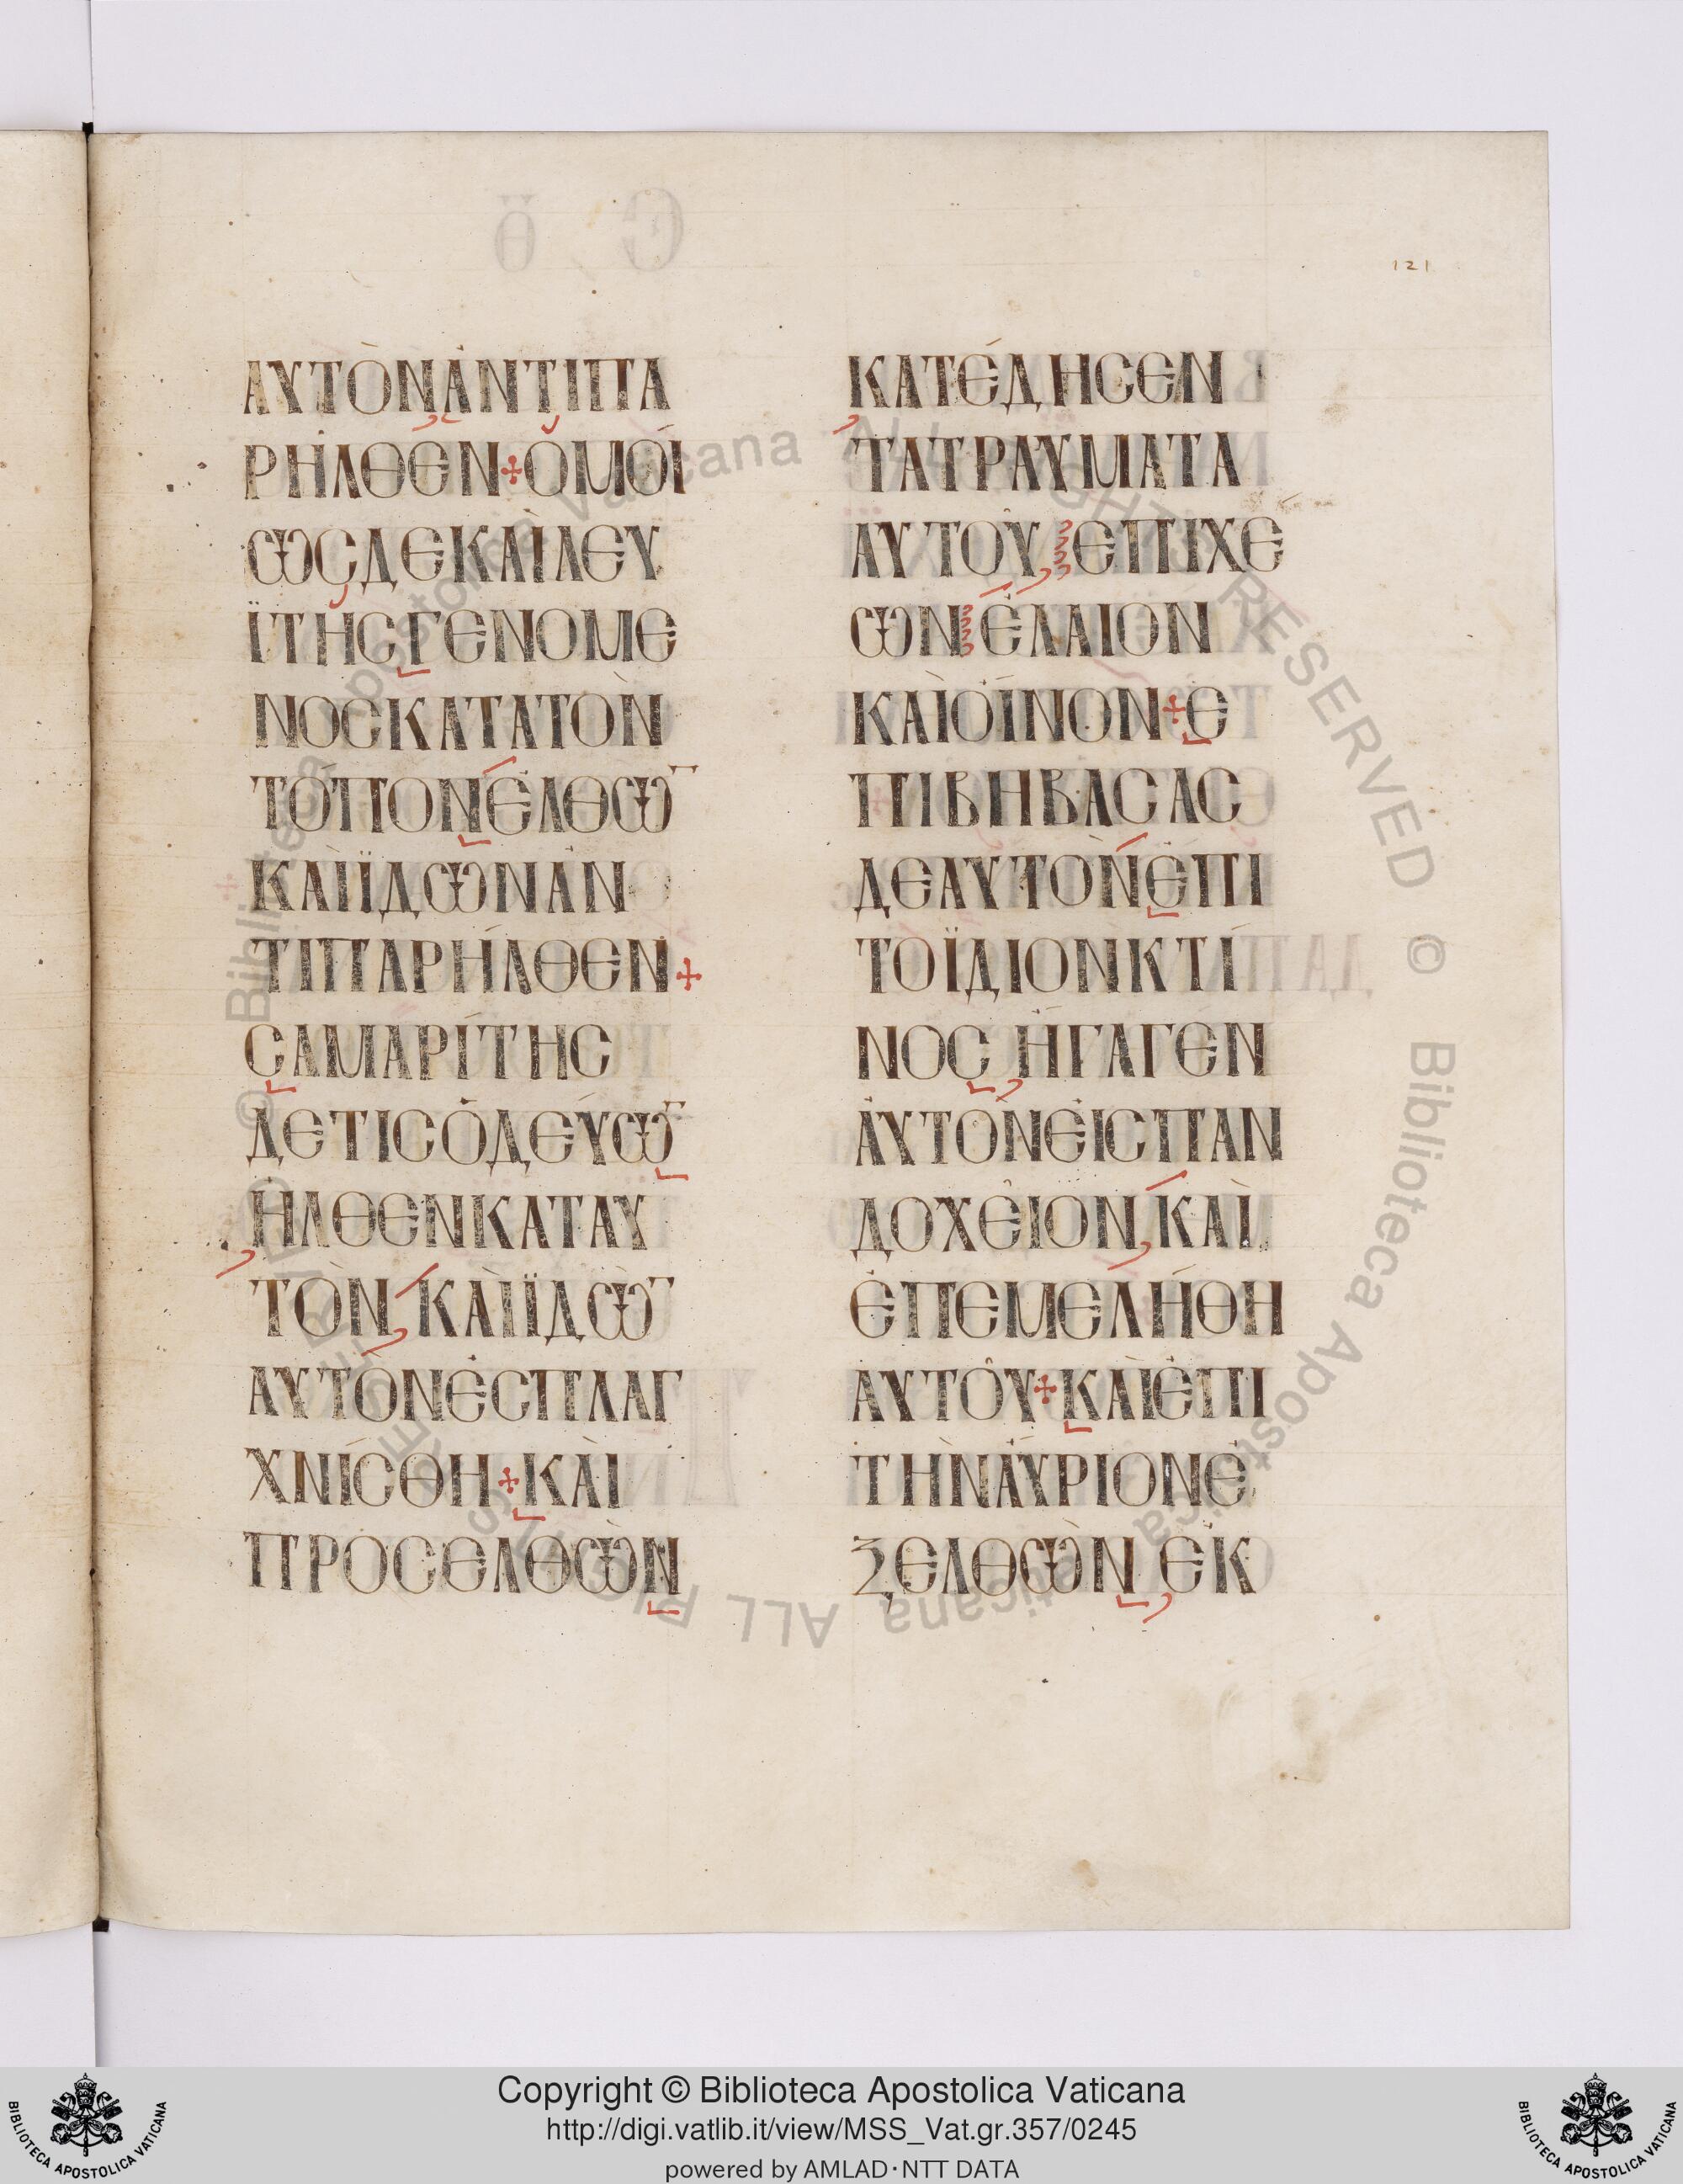 121
ΑΥΤῸΝἈΝΤΙΠΑ
ΡΗ͂ΛΘΕΝ✢ὉΜΟΊ
ΩϹΔΕΚΑῚΛΕΥ
ΪΤΗϹΓΕΝΟΜΕ
ΝΟϹΚΑΤΑΤῸΝ
ΤΌΠΟΝἘΛΘΩ̅
ΚΑῚΪΔΩΝἈΝ
ΤΙΠΑΡΗ͂ΛΘΕΝ✢
ϹΑΜΑΡΊΤΗϹ
ΔΕΤΙϹὉΔΕΎΩ̅
ἮΛΘΕΝΚΑΤΑΥ
ΤῸΝ,ΚΑῚΪΔΩ̅
ΑΥΤῸΝἘϹΠΛΑΓ
ΧΝΊϹΘΗ✢ΚΑῚ
ΠΡΟϹΕΛΘΩΝ
ΚΑΤΈΔΗϹΕΝ
ΤΑΤΡΑΥΜΑΤΑ
ΑΥΤΟΥ͂ΕΠΙΧΕ
ΩΝἘΛΑΙΟΝ
ΚΑῚΟἾΝΟΝ✢Ε
ΠΙΒΗΒΑϹΑϹ
ΔΕΑΥΤῸΝἘΠΙ
ΤΟΪΔΙΟΝΚΤΙ͂
ΝΟϹἬΓΑΓΕΝ
ἈΥΤῸΝΕἸϹΠΑΝ
ΔΟΧΕΙΟΝ,ΚΑῚ
ἘΠΕΜΕΛΉΘΗ
ΑΥΤΟΥ͂✢ΚΑῚἘΠΙ
ΤῊΝΑΎΡΙΟΝΕ
ΞΕΛΘΩΝΕΚ
© Biblioteca Apostolica Vaticana ALL RIGHTS RESERVED © Biblioteca Apostolica Vaticana ALL RIGHTS RESERVED
Copyright © Biblioteca Apostolica Vaticana
http://digi.vatlib.it/view/MSS_Vat.gr.357/0245
powered by AMLAD·NTT DATA
BIBLIOTECA APOSTOLICA VATICANA
BIBLIOTECA APOSTOLICA VATICANA